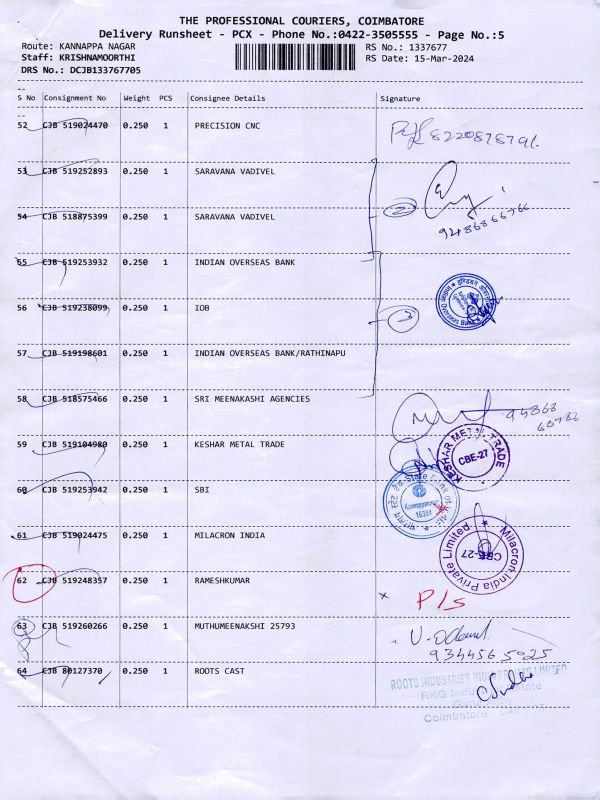 THE PROFESSIONAL COURIERS, COIMBATORE
Delivery Runsheet - PCX - Phone No.:0422-3505555 - Page No.:5
Route: KANNAPPA NAGAR RS No.: 1337677
Staff: KRISHNAMOORTHI RS Date: 15-Mar-2024
DRS No.: DCJB133767705
S No Consignment No Weight PCS Consignee Details Signature
52 CJB 519024470 0.250 1 PRECISION CNC
53 CJB 519252893 0.250 1 SARAVANA VADIVEL
2
54 CJB 518875399 0.250 1 SARAVANA VADIVEL
55 CJB 519253932 0.250 1 INDIAN OVERSEAS BANK
56 CJB 519238099 0.250 1 IOB
3
57 CJB 519198601 0.250 1 INDIAN OVERSEAS BANK/RATHINAPU
58 CJB 518575466 0.250 1 SRI MEENAKASHI AGENCIES
59 CJB 519104980 0.250 1 KESHAR METAL TRADE
KESHAR METAL TRADE
CBE-27
60 CJB 519253942 0.250 1 SBI
State Bank of
61 CJB 519024475 0.250 1 MILACRON INDIA
Milacron India Private Limited
CBE-27
62 CJB 519248357 0.250 1 RAMESHKUMAR
x P/S
63 CJB 519260266 0.250 1 MUTHUMEENAKSHI 25793
9344565025
64 CJB 80127370 0.250 1 ROOTS CAST
ROOTS INDUSTRIES INDIA PRIVATE LIMITED
RKG
Coimbatore